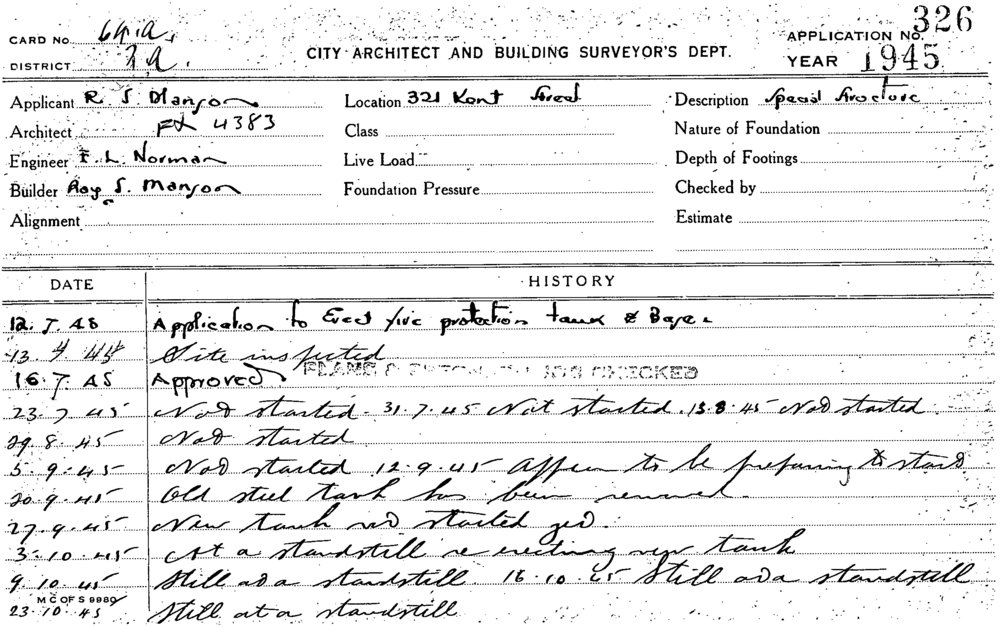 326
CARD No. 64.a.
CITY ARCHITECT AND BUILDING SURVEYOR'S DEPT.
APPLICATION No.
DISTRICT 2a.
YEAR 1945
Applicant R S Manson Location 321 Kent Street Description Special Structure
Architect FX 4383 Class Nature of Foundation
Engineer F. L. Norman Live Load Depth of Footings
Builder Roy S. Manson Foundation Pressure Checked by
Alignment Estimate
DATE HISTORY
12.7.45 Application to Erect fire protection tank & Base
13.7.45 Site inspected
16.7.45 Approved PLANS & CHECKED
23.7.45 Not started. 31.7.45 Not started. 15.8.45 Not started.
29.8.45 Not started
5.9.45 Not started 12.9.45 Appear to be preparing to start
20.9.45 Old steel tank has been removed.
27.9.45 New tank not started yet.
3.10.45 At a standstill re erecting new tank
9.10.45 Still at a standstill 16.10.45 Still at a standstill
M C OF S 9980
23.10.45 Still at a standstill